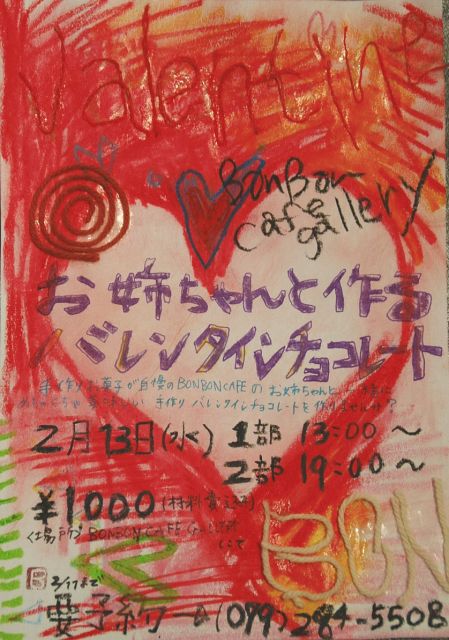 Valentine
BonBon
cafe
gallery
お姉ちゃんと作る
バレンタインチョコレート
手作りお菓子が自慢のBONBONCAFEの お姉ちゃんと一緒に
めちゃくちゃ おいしい 手作り バレンタインチョコレートを作りませんか?
2月13日(水) 1部 13:00〜
2部 19:00〜
¥1000(材料費込み)
〈場所〉BONBON CAFE Gallery
にて
BON
2/17まで
要予約→(099)284-5508